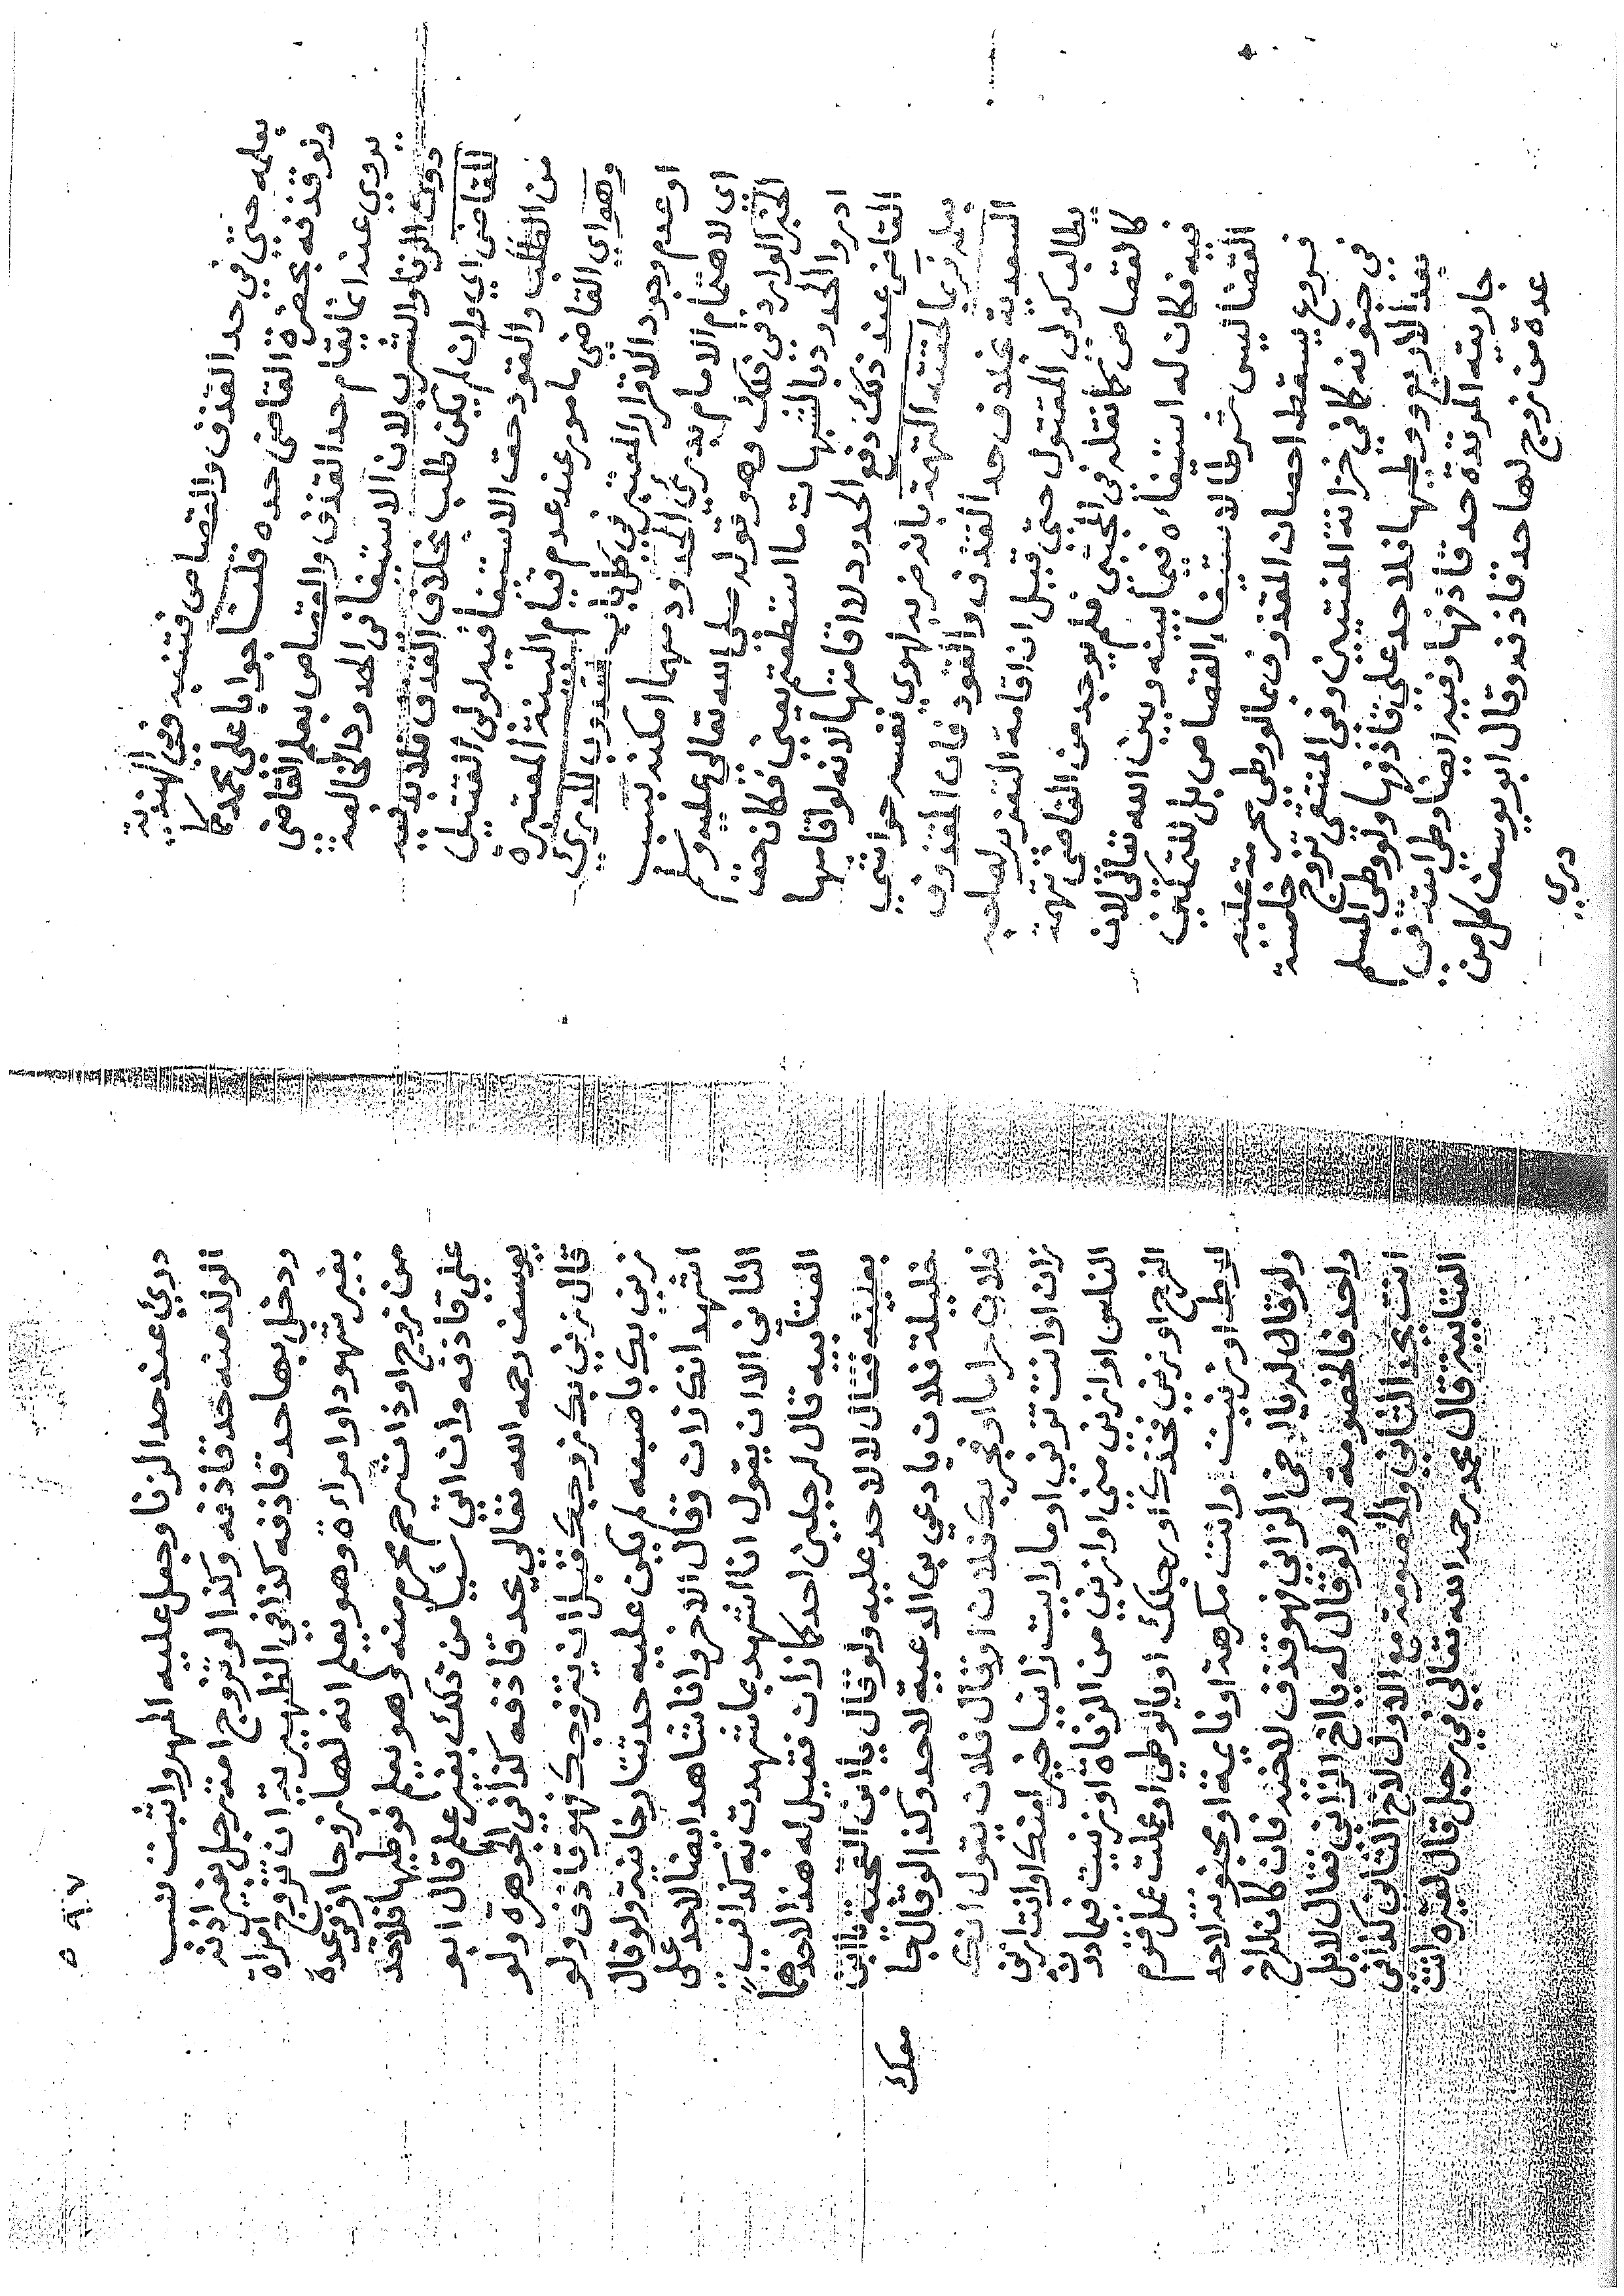 يعلمه حتى في حد القذف والقصاص فتنبه وفي الهندية
ولو قذفه بحضرة القاضي حده قلت جوابا على محمد كما
يروي عند انما يقام حد القذف والقصاص بعلم القاضي
دون الزنا والشرب لان الاستيفا في الحدود الخالصة
للقاضي اي وان لم يكن طلب بخلاف القذف فلابد فيه
من الطلب والقود حق الاستيفا فيه لولي القتيل
وهو اي القاضي مامور عند عدم قيام البينة المعتبرة
او عدم وجود الاقرار المعتبر في كل باب مندوب للدرئ
اي لاهتمام الامام بدرئ الحدود مهما امكنه بسبب
الخبر الوارد في ذلك وهو قوله صلى الله تعالى عليه وسلم
ادروا الحدود بالشبهات ما استطعتم يعني فكان حق
القاضي عند ذلك دفع الحدود لا اقامتها لانه لو اقامها
بعلمه فربما لحقته التهمة بانه ضربه لهوي نفسه حواشي
السعدية بخلاف حد القذف والقود فان المقذوف
يطالب كولي المقتول حتى قيل ان اقامة التعزير لصاحبه
كالقصاص كما نقله في المجتبى فلم يوجد من القاضي تهمة
فيه فكان له استيفاءه فيما بينه وبين الله تعالى لان
القضا ليس شرطا لاستيفاء القصاص بل للتمكين
فروع يسقط احصان المقذوف بالوطي بحرمة عليه
في جنونه كما في خزانة المفتيين وفي المنتقى تزوج خامسة
بعد الاربع ووطيها فلا حد على قاذفها ولو وطي المسلم
جاريته المرتدة حد قاذفها وفيه ايضا وطي امته في
عدة من زوج لها حد قاذفه وقال ابو يوسف كل من
درئ
٥٩٧
درئ عند حد الزنا وجعل عليه المهر واثبت نسب
الولد منه حد قاذفه وكذا لو تزوج امة رجل بغير اذنه
ودخل بها حد قاذفه كذا في الظهيرية ان تزوج امراة
بغير شهود او امراءة وهو يعلم انه لها زوجا او في عدة
من زوج او ذات رحم محرم منه وهو يعلم فوطيها فلا حد
على قاذفه وان اتي شيا من ذلك بغير علم قال ابو
يوسف رحمه الله تعالى يحد قاذفه كذا في الجوهرة ولو
قال زني بك زوجك قبل ان يتزوجك فهو قاذف ولو
زني بك باصبعه لم يكن عليه حد تتارخانية ولو قال
اشهد انك زان وقال الاخر وانا شاهد ايضا لا حد على
الثاني الا ان يقول انا اشهد بما شهدت به كذا في
العتابيه قال لرجلين احدكما زان فقيل له هذا لاحدهما
بعينه فقال لا لا حد عليه ولو قال يا ابن القحبة يا ابن
خليلة فلان يا دعي بن الدعية لا حد وكذا لو قال جا
معك
فلان حراما وفجر بك فلان او قال فلان يقول انك
زان او انت تزني او ما رايت زانيا خير امنك او انت ازني
الناس او ازني مني او ازني من الزناة او زنيت فيما دون
الفرج او زني فخذك او رجلك او يا لوطي او عملت عمل قوم
لوط او زنيت وانت مكرهة او نايمة او مجنونة لا حد
ولو قال لرجل يا اخ الزاني فهو قذف لاخيه فان كان له اخ
واحد فالخصومة له ولو قال له يا اخ الزاني فقال لا بل
انت يحد الثاني والخصومة مع الاول لاخ الثاني كذا في
العتابية قال محمد رحمه الله تعالى في رجل قال لغيره انت